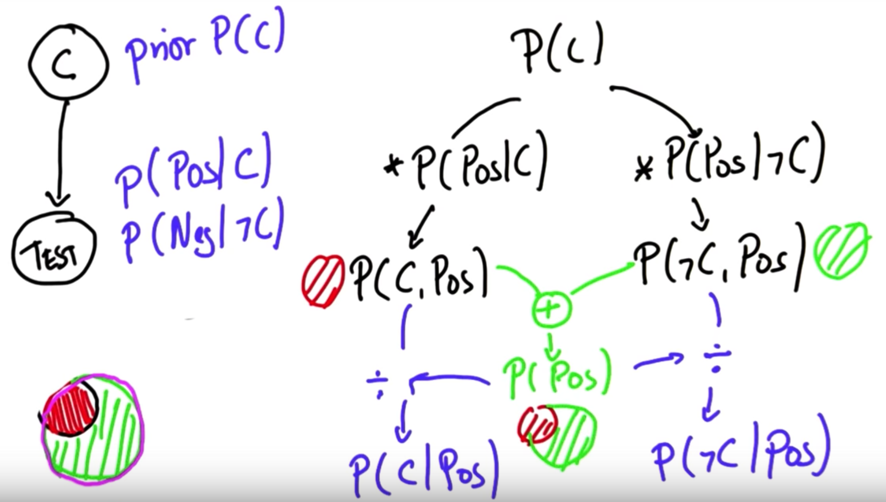 C
prior P(C)
P(Pos|C)
P(Neg|¬C)
TEST
P(C)
* P(Pos|C)
* P(Pos|¬C)
P(C,Pos)
P(¬C,Pos)
+
÷
P(Pos)
÷
P(C|Pos)
P(¬C|Pos)